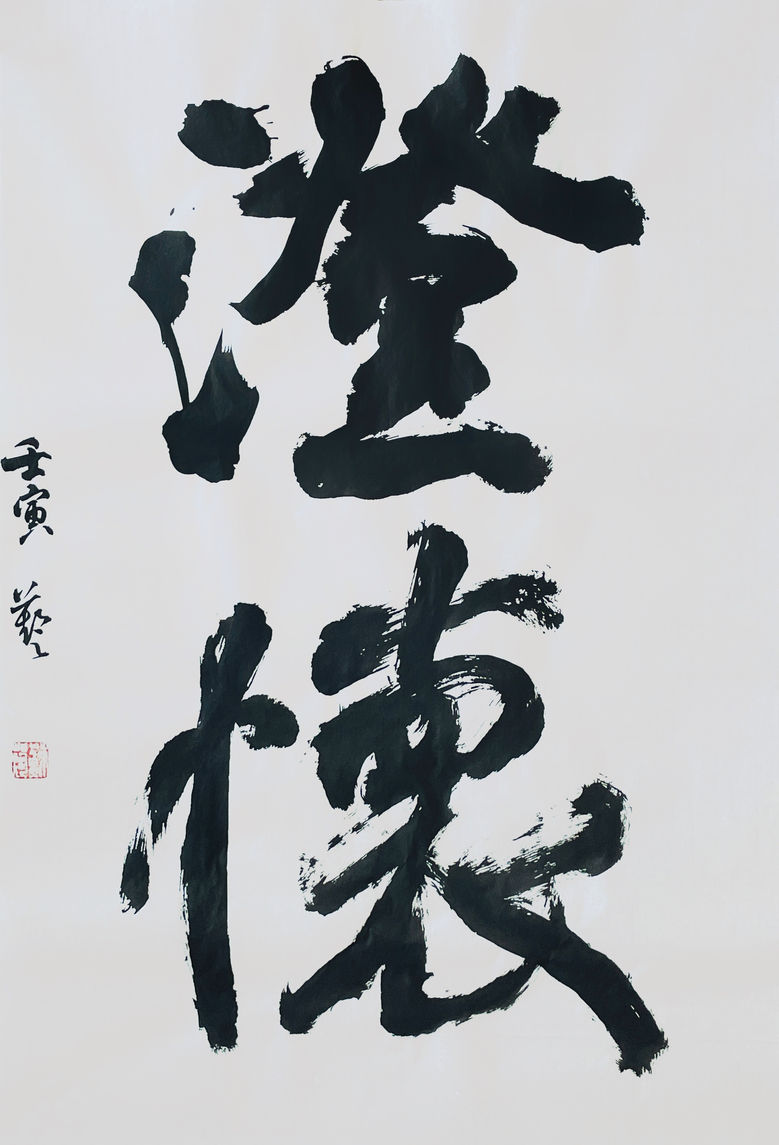 澄懷
壬寅 藝